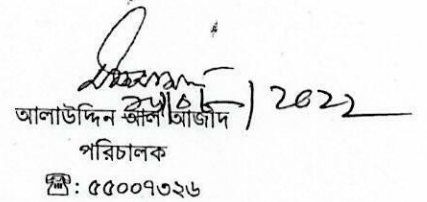 ২০২২
আলাউদ্দিন আল আজাদ
পরিচালক
☎: ৫৫০০৭৩২৬